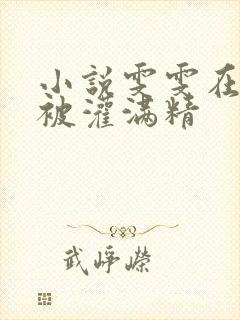 小说雯雯在
被灌满精
武峥嵘